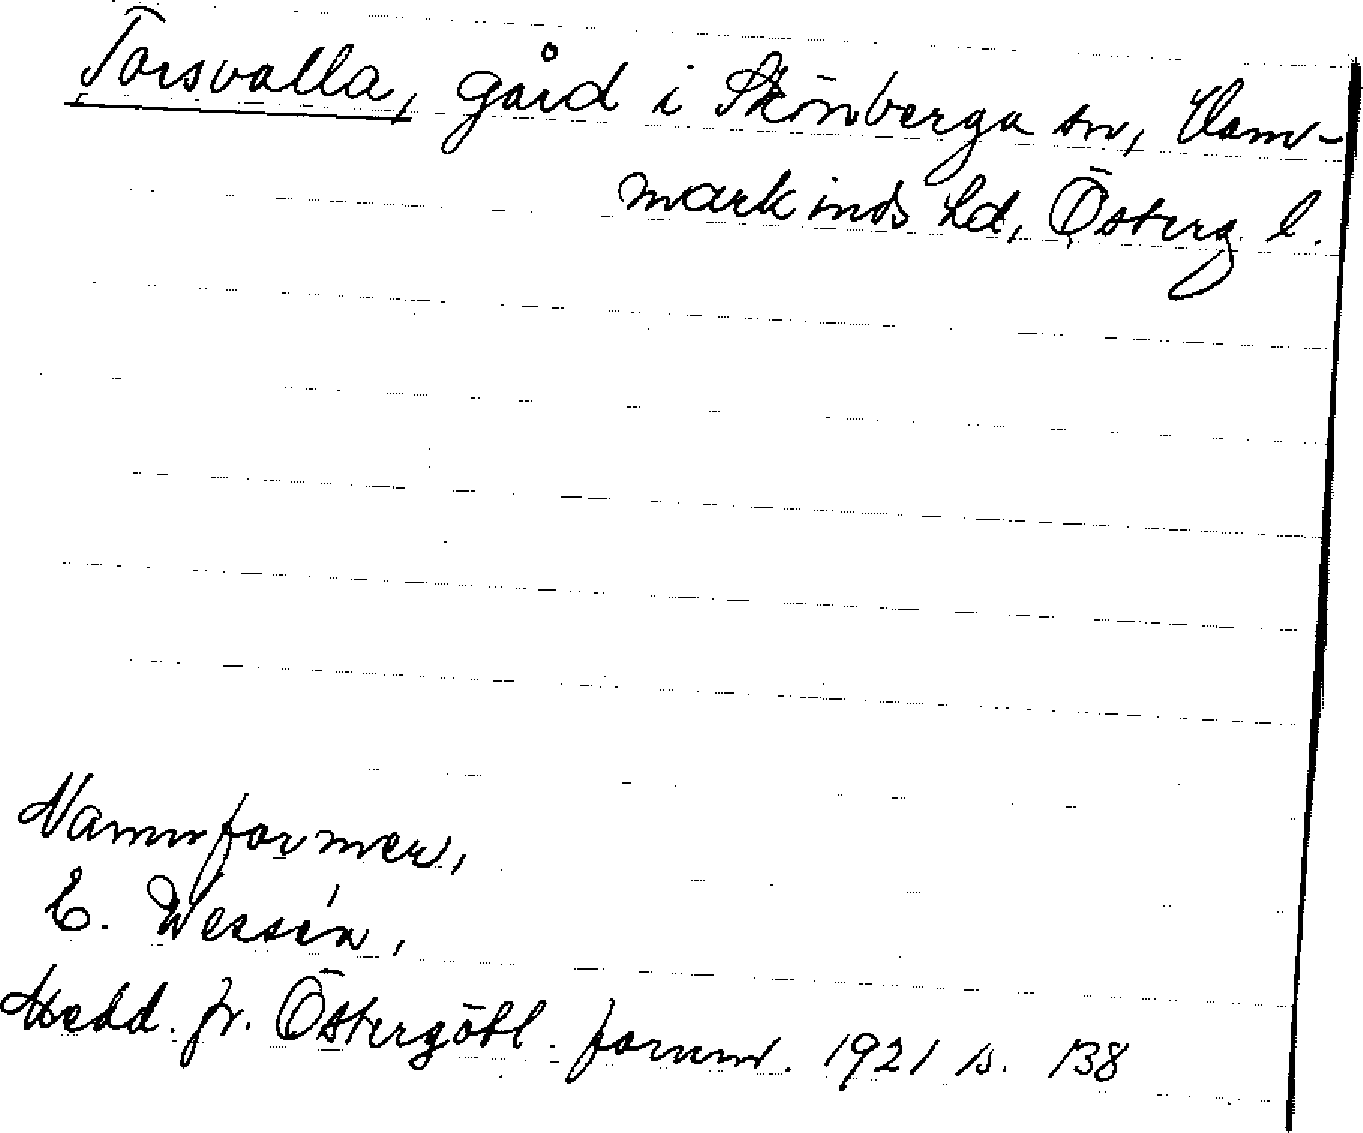 Torsvalla, gård i Skönberga sn, Ham-
markinds hd, Österg. l.
Namnformer,
E. Wessén,
Medd. fr. Östergötl. fornm. 1921 s. 138